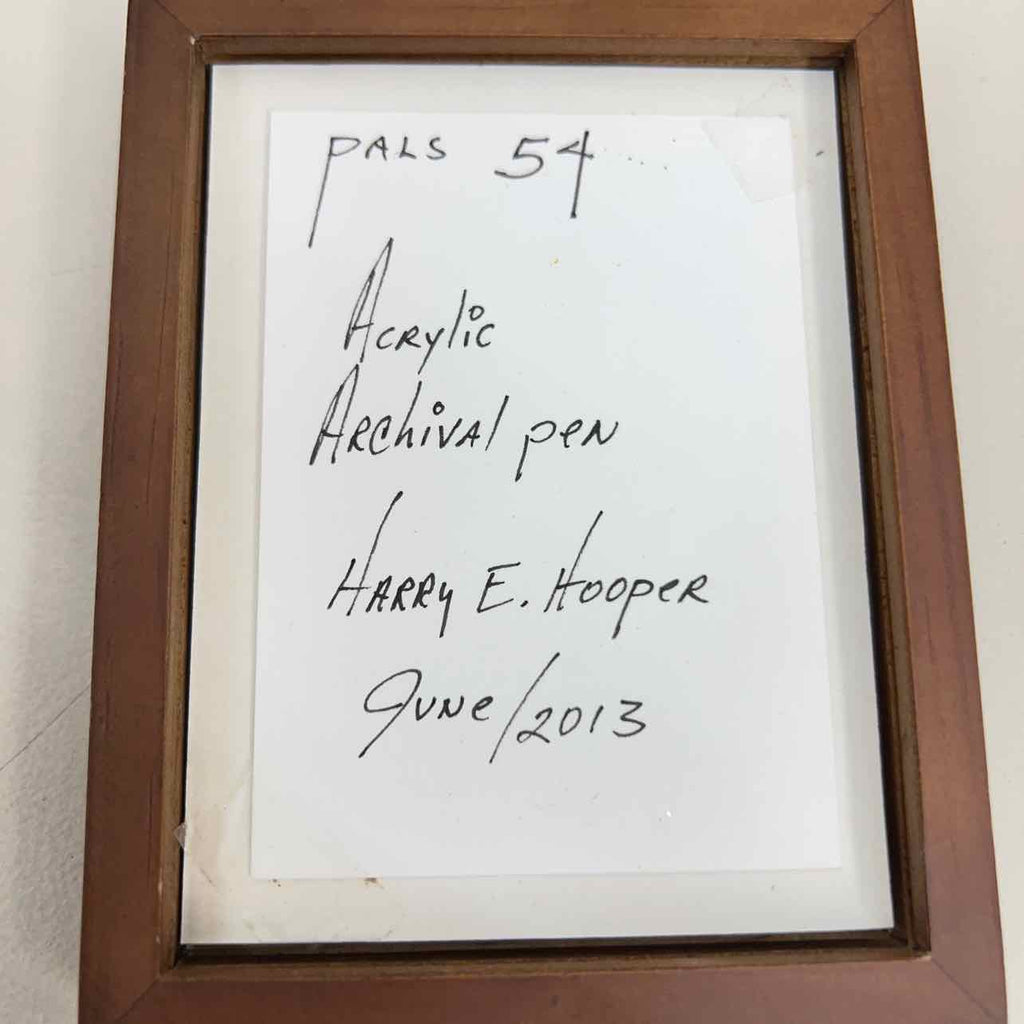 PALS 54
Acrylic
Archival pen
Harry E. Hooper
June/2013